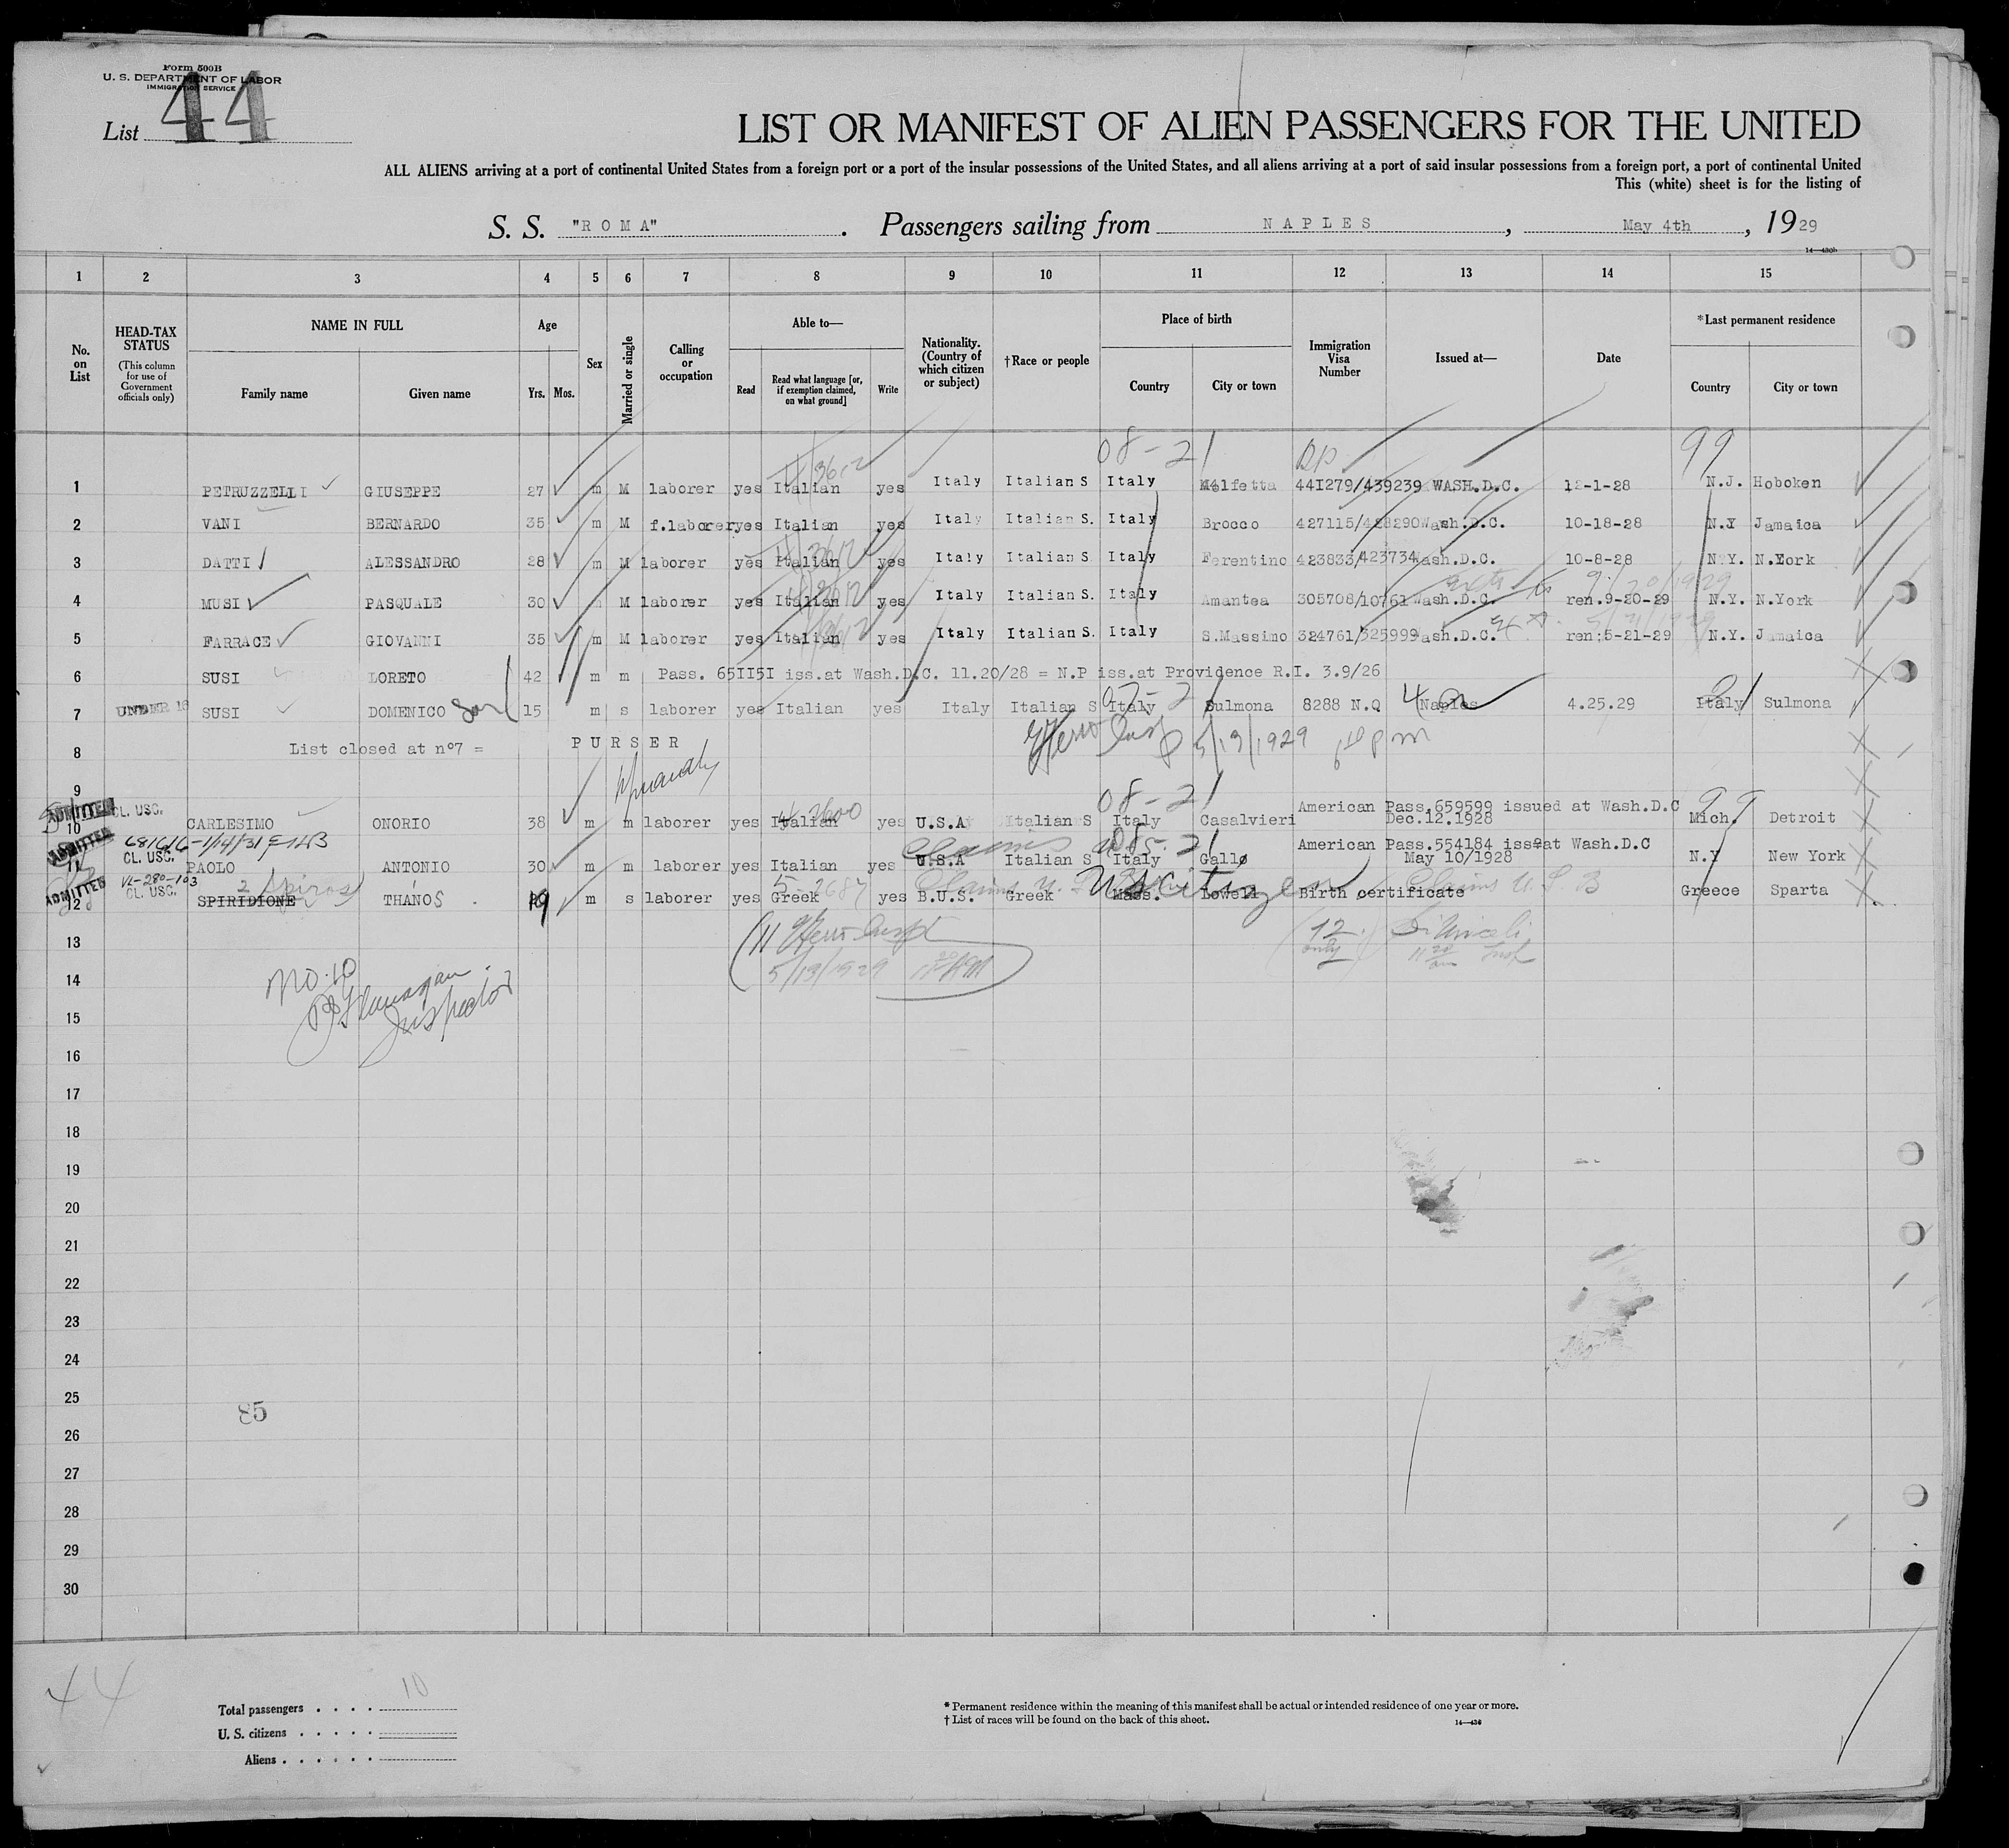 Form 500B
U. S. DEPARTMENT OF LABOR
IMMIGRATION SERVICE
List 44
LIST OR MANIFEST OF ALIEN PASSENGERS FOR THE UNITED
ALL ALIENS arriving at a port of continental United States from a foreign port or a port of the insular possessions of the United States, and all aliens arriving at a port of said insular possessions from a foreign port, a port of continental United
This (white) sheet is for the listing of
S. S. "ROMA". Passengers sailing from NAPLES, May 4th, 1929
14—430b
1 2 3 4 5 6 7 8 9 10 11 12 13 14 15
No. on List
HEAD-TAX STATUS
(This column for use of Government officials only)
NAME IN FULL
Family name Given name
Age
Yrs. Mos.
Sex
Married or single
Calling or occupation
Able to—
Read
Read what language [or, if exemption claimed, on what ground]
Write
Nationality. (Country of which citizen or subject)
†Race or people
Place of birth
Country City or town
Immigration Visa Number
Issued at—
Date
*Last permanent residence
Country City or town
08-21 99
1 PETRUZZELLI GIUSEPPE 27 m M laborer yes Italian yes Italy Italian S Italy Molfetta 441279/439239 WASH.D.C. 12-1-28 N.J. Hoboken
2 VANI BERNARDO 35 m M f.laborer yes Italian yes Italy Italian S. Italy Brocco 427115/428290 Wash.D.C. 10-18-28 N.Y Jamaica
3 DATTI ALESSANDRO 28 m M laborer yes Italian yes Italy Italian S Italy Ferentino 423833/423734 Wash.D.C. 10-8-28 N.Y. N.York
4 MUSI PASQUALE 30 M laborer yes Italian yes Italy Italian S. Italy Amantea 305708/10761 Wash.D.C. ren.9-20-29 N.Y. N.York
5 FARRACE GIOVANNI 35 m M laborer yes Italian yes Italy Italian S. Italy S.Massimo 324761/325999 Wash.D.C. ren:5-21-29 N.Y. Jamaica
6 SUSI LORETO 42 m m Pass. 65II5I iss.at Wash.D.C. 11.20/28 = N.P iss.at Providence R.I. 3.9/26
7 UNDER 16 SUSI DOMENICO son 15 m s laborer yes Italian yes Italy Italian S Italy Sulmona 8288 N.Q Naples 4.25.29 Italy Sulmona
8 List closed at n°7 = PURSER 5/13/1929
9
08-21 99
10 ADMITTED CL. USC. CARLESIMO ONORIO 38 m m laborer yes Italian yes U.S.A Italian S Italy Casalvieri American Pass.659599 issued at Wash.D.C Dec.12.1928 Mich. Detroit
11 ADMITTED CL. USC. PAOLO ANTONIO 30 m m laborer yes Italian yes U.S.A Italian S Italy Gallo American Pass.554184 iss at Wash.D.C May 10/1928 N.Y New York
VL-280-103
12 ADMITTED CL. USC. SPIRIDIONE Spiros THANOS 19 m s laborer yes Greek yes B.U.S. Greek Mass. Lowell Birth certificate Greece Sparta
US Citizen
13
5/13/1929
14
No. 10
Flanagan
Inspector
15
16
17
18
19
20
21
22
23
24
25
85
26
27
28
29
30
44
Total passengers . . . . 10
U. S. citizens . . . . .
Aliens . . . . . .
* Permanent residence within the meaning of this manifest shall be actual or intended residence of one year or more.
† List of races will be found on the back of this sheet.
14—430